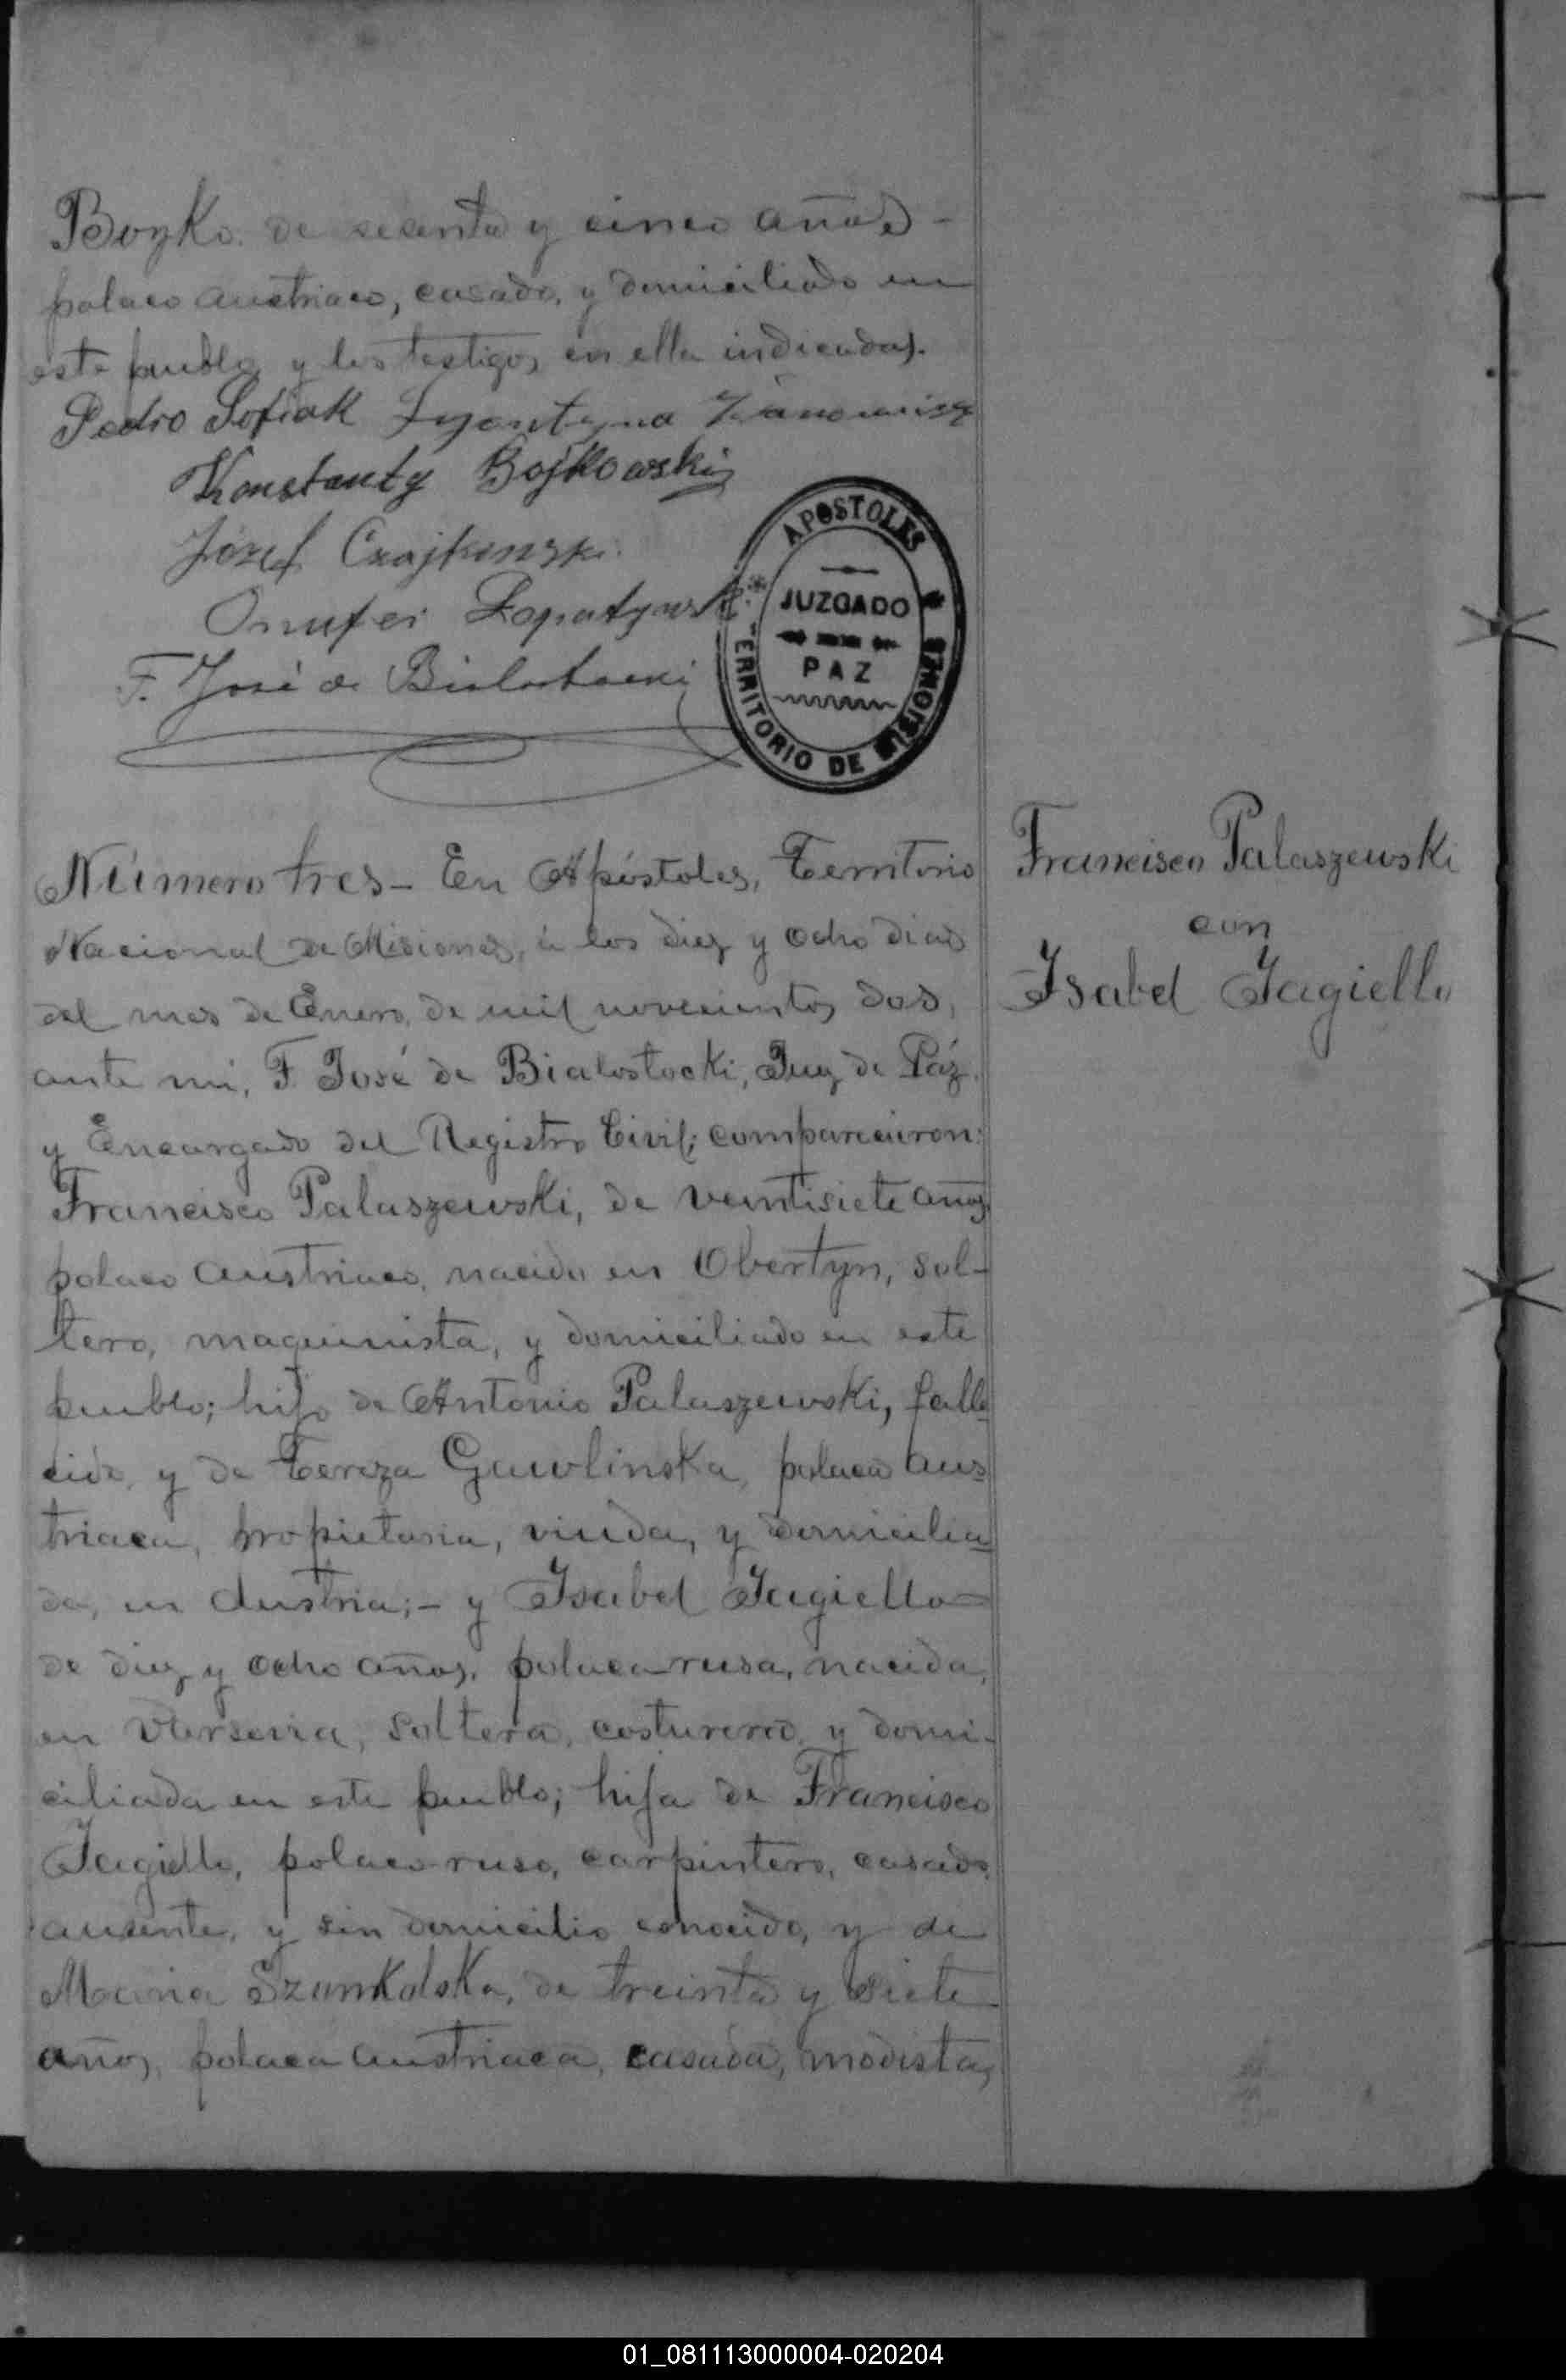 Boyko. de sesenta y cinco años -
polaco austriaco, casado, y domiciliado en
este pueblo y los testigos en ella indicados.
Pedro Sofiak
Konstanty Bojkowski
Józef Czajkowski
Onufri Lopatynski
F. José de Bialostocki
APOSTOLES
JUZGADO
PAZ
TERRITORIO DE MISIONES
Número tres - En Apóstoles, Territorio
Nacional de Misiones, á los diez y ocho dias
del mes de Enero, de mil novecientos dos,
ante mi, F. José de Bialostocki, Juez de Páz
y Encargado del Registro Civil; comparecieron:
Francisco Palaszewski, de veintisiete años,
polaco austriaco, nacido en Obertyn, sol-
tero, maquinista, y domiciliado en este
pueblo; hijo de Antonio Palaszewski, falle
cido, y de Tereza Gawlinska, polaca aus
triaca, propietaria, viuda, y domicilia
da, en Austria; - y Isabel Jagiello
de diez y ocho años, polaca rusa, nacida,
en Varsovia, soltera, costurera, y domi-
ciliada en este pueblo; hija de Francisco
Jagiello, polaco ruso, carpintero, casado,
ausente, y sin domicilio conocido, y de
Maria de treinta y siete
años, polaca austriaca, casada, modista,
Francisco Palaszewski
con
Isabel Jagiello
01_081113000004-020204